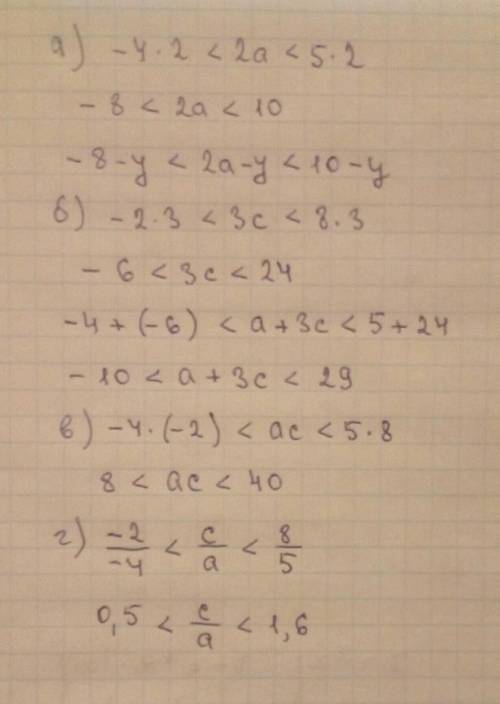 а) -4·2 < 2a < 5·2
-8 < 2a < 10
-8-y < 2a-y < 10-y
б) -2·3 < 3c < 8·3
-6 < 3c < 24
-4+(-6) < a+3c < 5+24
-10 < a+3c < 29
в) -4·(-2) < ac < 5·8
8 < ac < 40
г) -2/-4 < c/a < 8/5
0,5 < c/a < 1,6